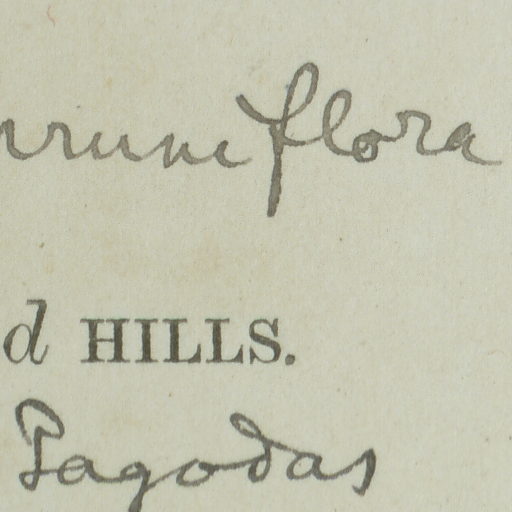 flora
d HILLS.
Pagodas